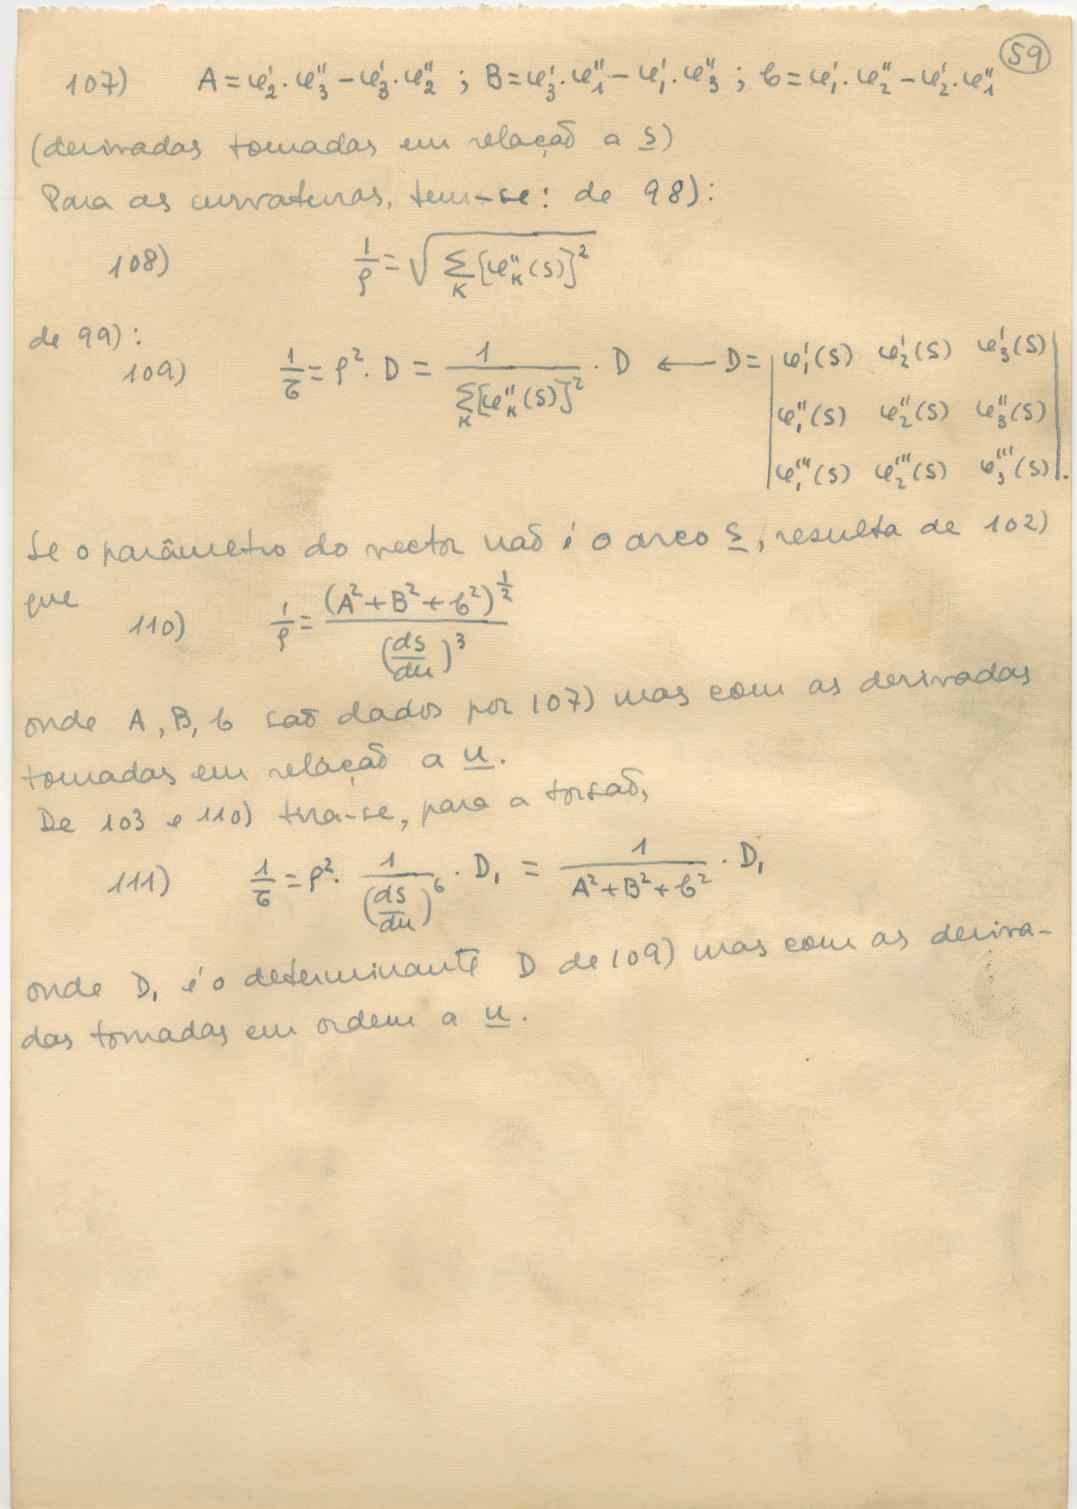 59
107) A = φ₂'·φ₃'' − φ₃'·φ₂'' ; B = φ₃'·φ₁'' − φ₁'·φ₃'' ; C = φ₁'·φ₂'' − φ₂'·φ₁''
(derivadas tomadas em relação a s)
Para as curvaturas, tem-se: de 98):
108) 1/ρ = √(∑_K [φ''_K(s)]²)
de 99):
109) 1/τ = ρ²·D = 1/(∑_K [φ''_K(s)]²) · D ⟵ D = | φ₁'(s) φ₂'(s) φ₃'(s) |
| φ₁''(s) φ₂''(s) φ₃''(s) |
| φ₁'''(s) φ₂'''(s) φ₃'''(s) |.
Se o parâmetro do vector não é o arco s, resulta de 102)
que
110) 1/ρ = (A²+B²+C²)^(1/2) / (ds/du)³
onde A, B, C são dados por 107) mas com as derivadas
tomadas em relação a u.
De 103 e 110) tira-se, para a torsão,
111) 1/τ = ρ²· 1/(ds/du)⁶ · D₁ = 1/(A²+B²+C²) · D₁
onde D₁ é o determinante D de 109) mas com as deriva-
das tomadas em ordem a u.